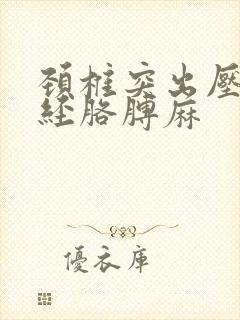 頚椎突出壓
経胳膊麻
優衣庫